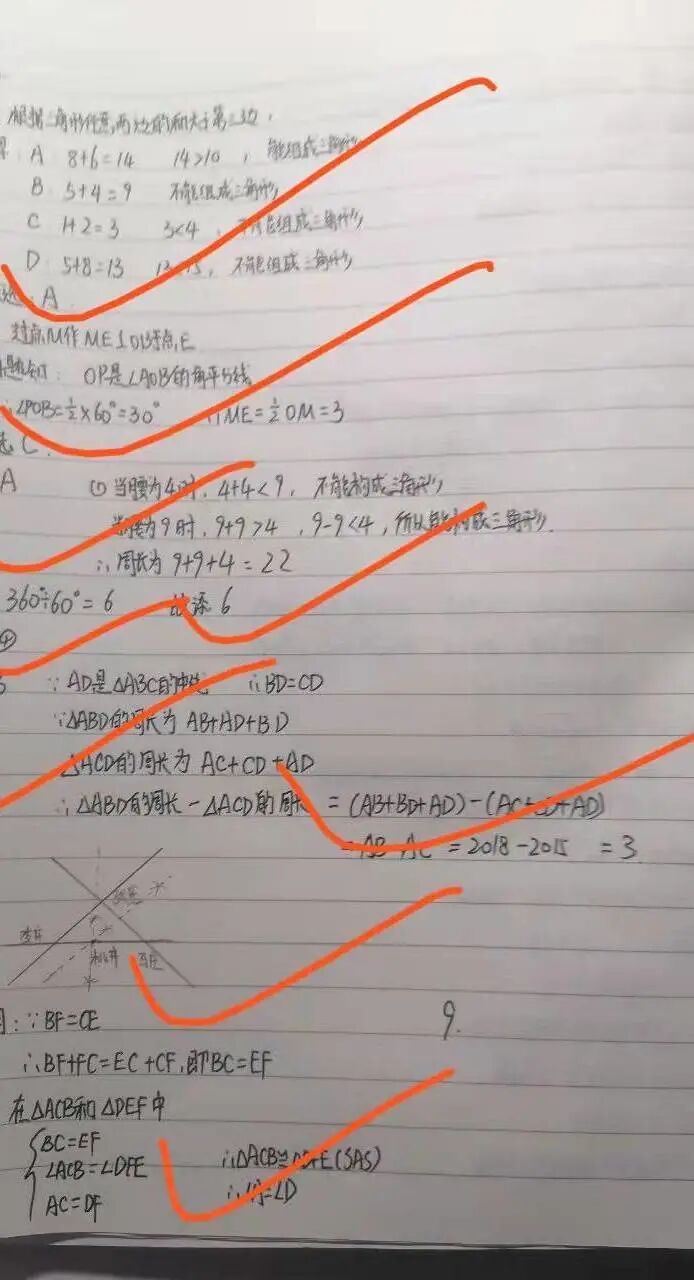 根据三角形任意两边的和大于第三边,
A 8+6=14 14>10, 能组成三角形
B. 5+4=9 不能组成三角形
C 1+2=3 3<4, 不能组成三角形
D. 5+8=13 不能组成三角形
选: A
过点M作ME⊥OB于点E
题知: OP是∠AOB的角平分线
∴∠POB=½×60°=30° ∴ME=½OM=3
选C.
A ①当腰为4时, 4+4<9, 不能构成三角形
当腰为9时, 9+9>4, 9-9<4, 所以能构成三角形.
∴周长为 9+9+4=22
360°÷60°=6 故添6
④
∵AD是△ABC的中线 ∴BD=CD
∵△ABD的周长为 AB+AD+BD
△ACD的周长为 AC+CD+AD
∴△ABD的周长-△ACD的周长 =(AB+BD+AD)-(AC+CD+AD)
=AB-AC =2018-2015 =3
∵BF=CE 9.
∴BF+FC=EC+CF,即BC=EF
在△ACB和△DEF中
BC=EF
∠ACB=∠DFE ∴△ACB≌△DFE(SAS)
AC=DF ∴∠A=∠D